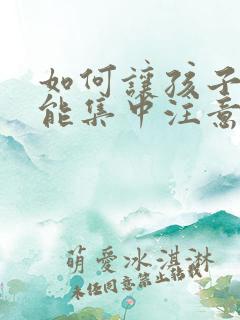 如何讓孩子
能集中注意
萌愛冰淇淋
未经同意禁止转载